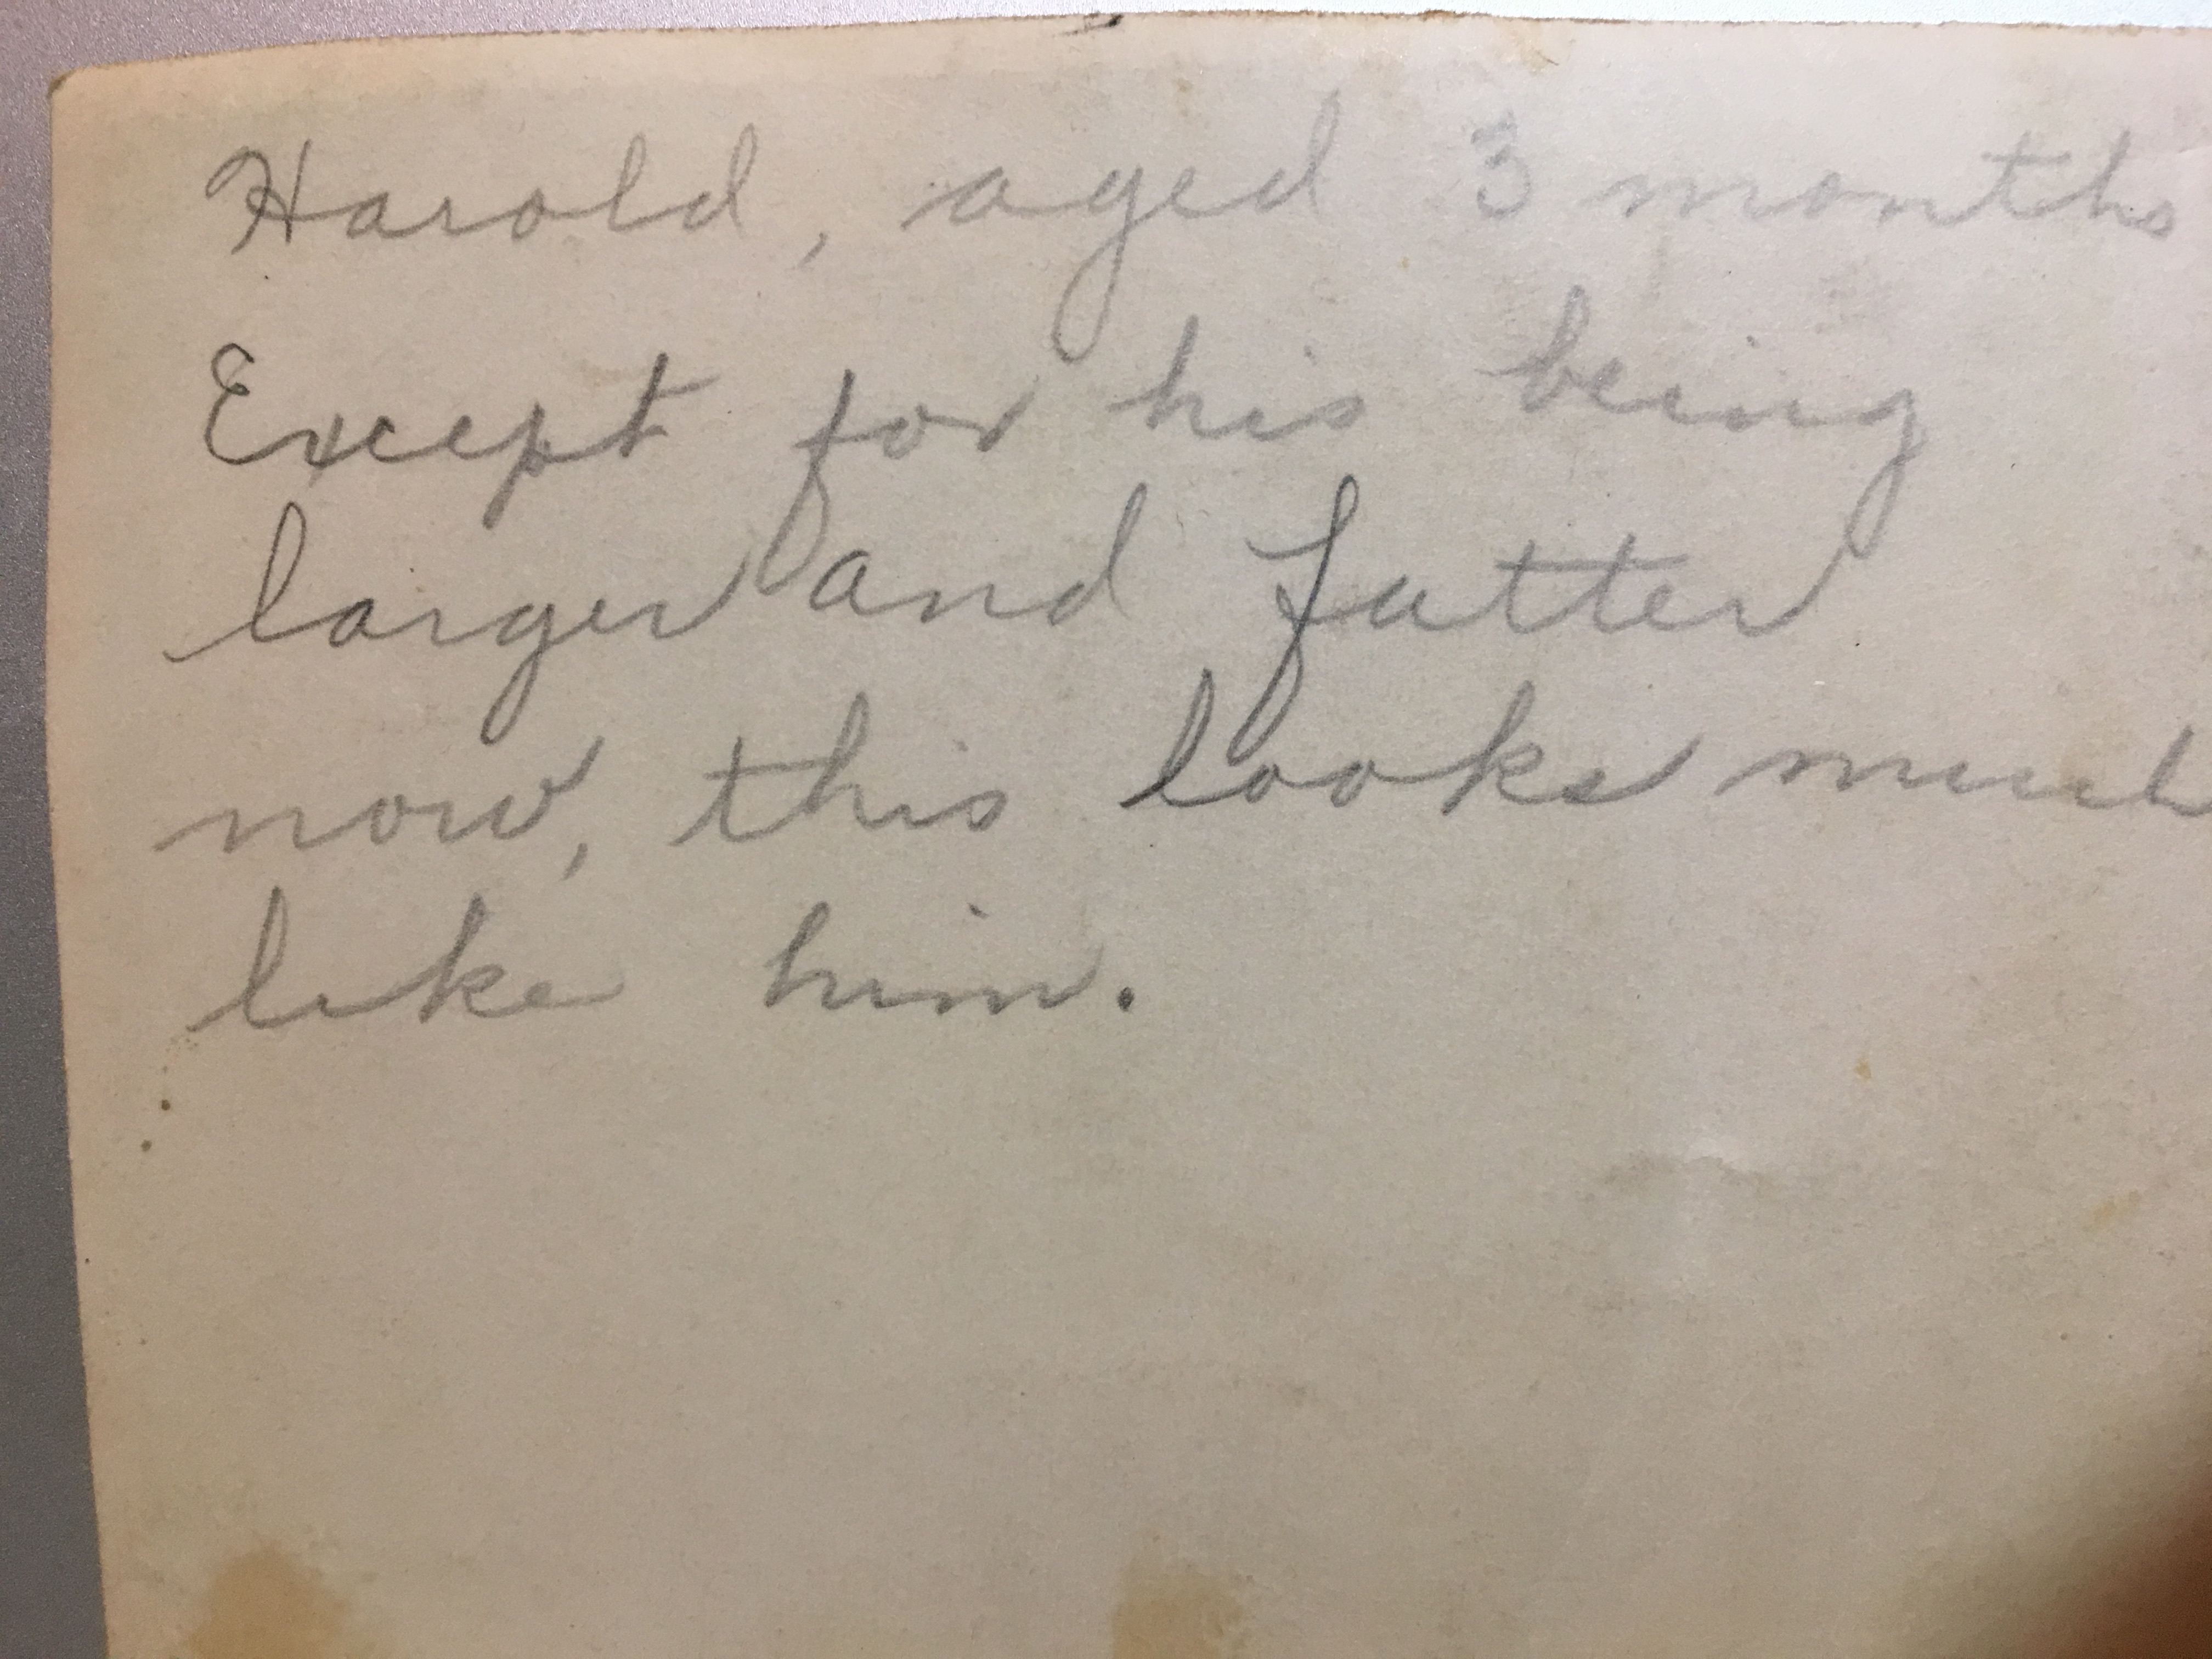 Harold, aged 3 months
Except for his being
larger and fatter
now, this looks much
like him.